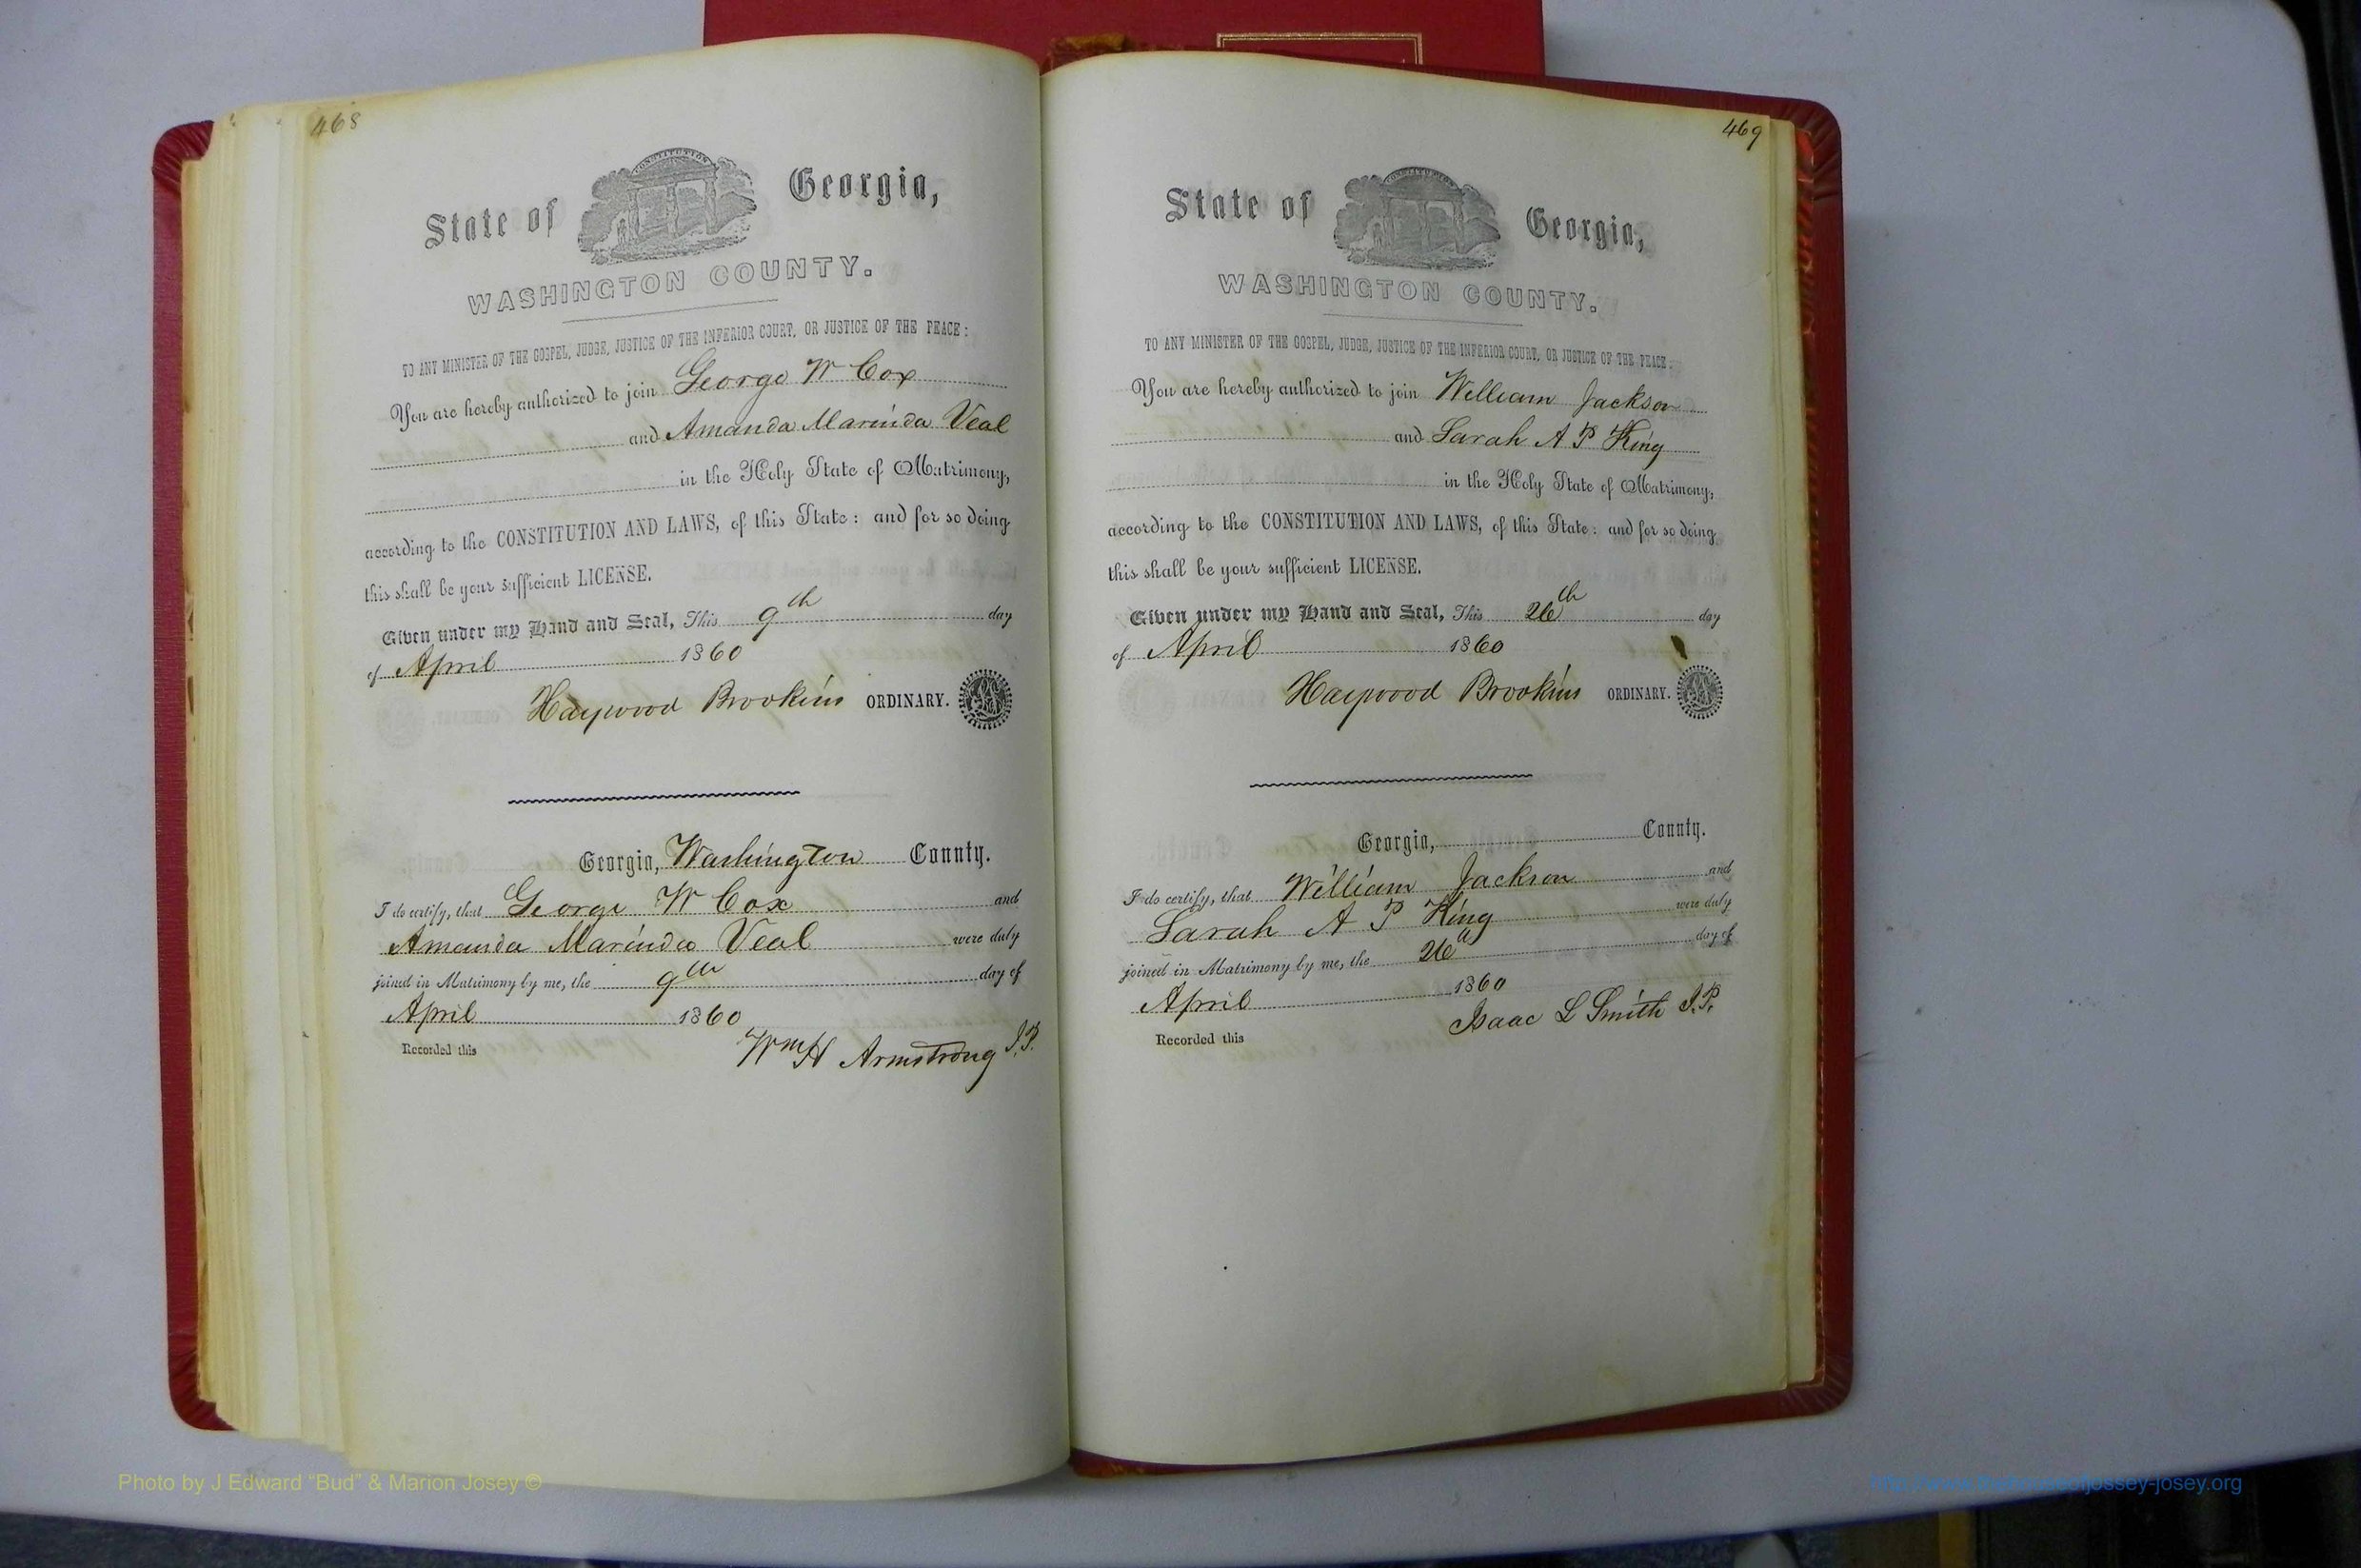 468
CONSTITUTION
State of Georgia,
WASHINGTON COUNTY.
TO ANY MINISTER OF THE GOSPEL, JUDGE, JUSTICE OF THE INFERIOR COURT, OR JUSTICE OF THE PEACE:
You are hereby authorized to join George W Cox
and Amanda Marinda Veal
in the Holy State of Matrimony,
according to the CONSTITUTION AND LAWS, of this State: and for so doing
this shall be your sufficient LICENSE.
Given under my Hand and Seal, This 9th day
of April 1860
Haywood Brookins ORDINARY.
Georgia, Washington County.
I do certify, that George W Cox and
Amanda Marinda Veal were duly
joined in Matrimony by me, the 9th day of
April 1860
Wm H Armstrong J.P.
Recorded this
469
CONSTITUTION
State of Georgia,
WASHINGTON COUNTY.
TO ANY MINISTER OF THE GOSPEL, JUDGE, JUSTICE OF THE INFERIOR COURT, OR JUSTICE OF THE PEACE.
You are hereby authorized to join William Jackson
and Sarah A P King
in the Holy State of Matrimony,
according to the CONSTITUTION AND LAWS, of this State: and for so doing
this shall be your sufficient LICENSE.
Given under my Hand and Seal, This 26th day
of April 1860
Haywood Brookins ORDINARY.
Georgia, County.
I do certify, that William Jackson and
Sarah A P King were duly
joined in Matrimony by me, the 26th day of
April 1860
Isaac L Smith J.P.
Recorded this
Photo by J Edward “Bud” & Marion Josey ©